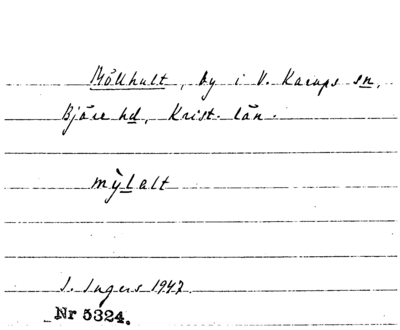 Möllhult, by i V. Karups sn,
Bjäre hd, Krist. län.
mỳlalt
I. Ingers 1947.
Nr 5324.